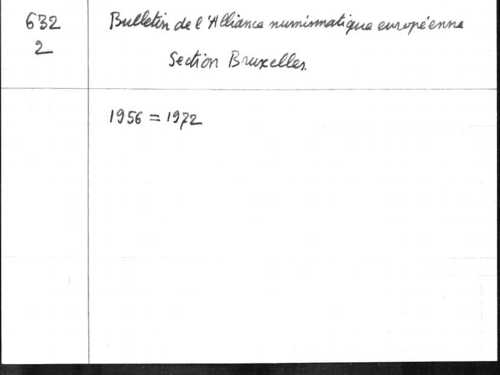 632
2
Bulletin de l'Alliance numismatique européenne
Section Bruxelles.
1956 = 1972